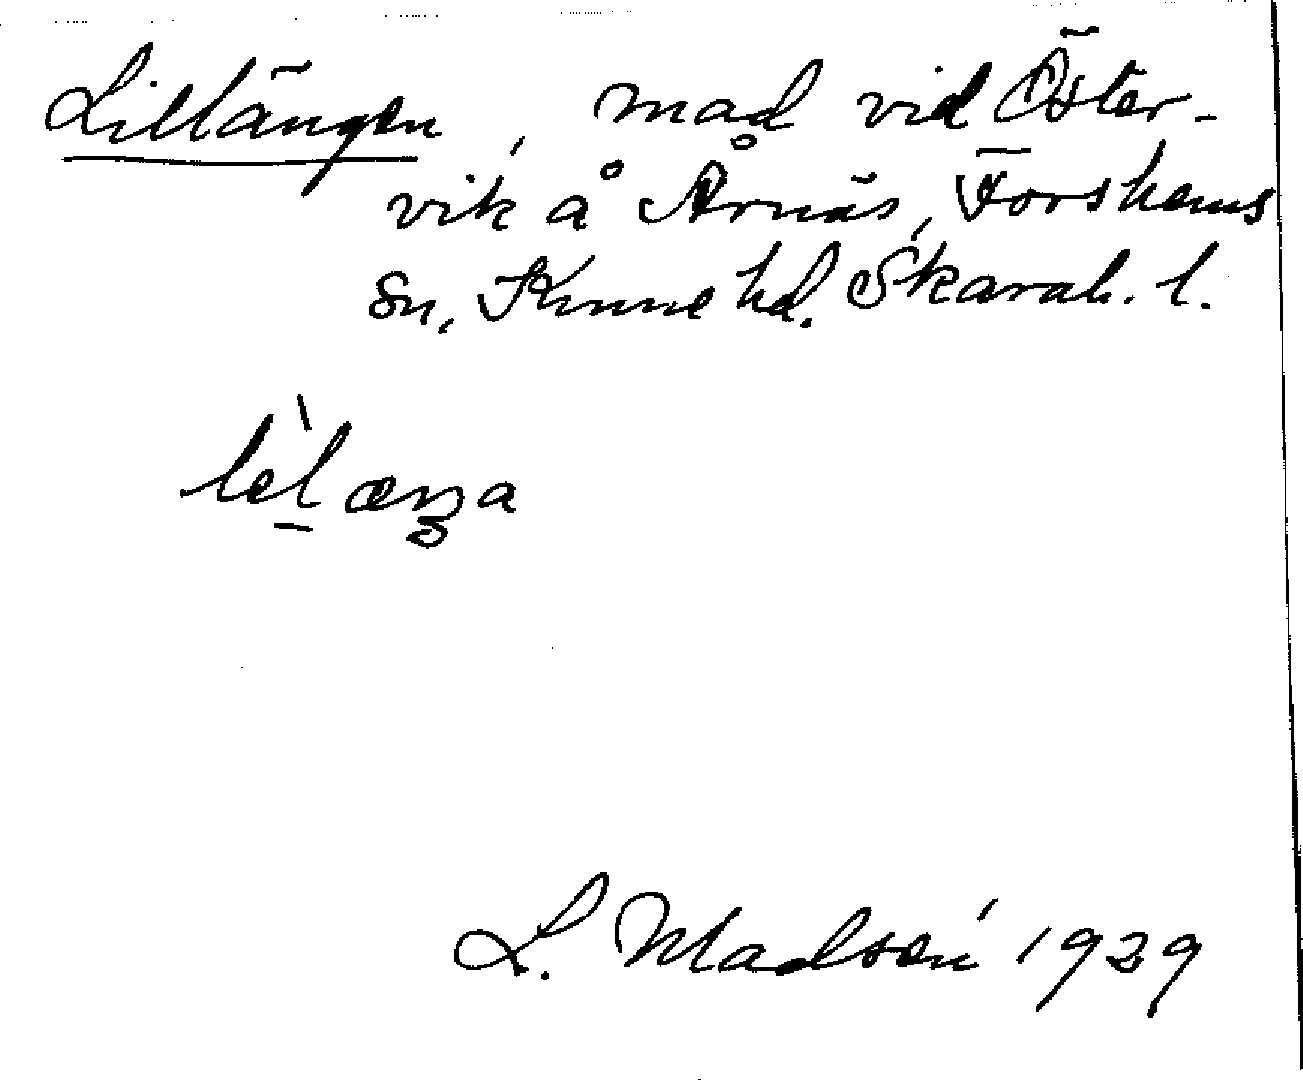 Lillängen, mad vid Öster-
vik å Årnäs, Forshems
sn, Kinne hd. Skarab. l.
L. Madsén 1929